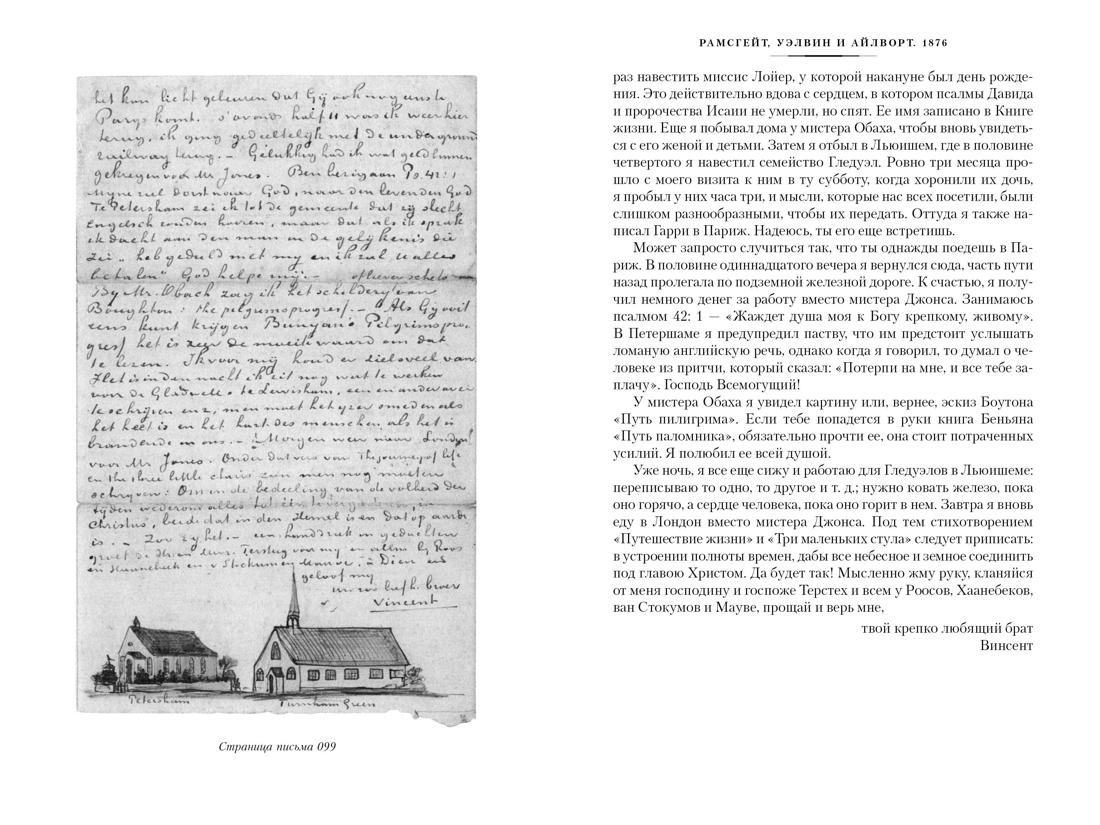 het kan licht gebeuren dat Gij ook nog eens te
Parijs komt. s'avonds half 11 was ik weer hier
terug, ik ging gedeeltelijk met de underground
railway terug. — Gelukkig had ik wat geld binnen
gekregen voor Mr Jones. Ben bezig aan Ps. 42:1
Mijne ziel dorst naar God, naar den levenden God
Te Petersham zei ik tot de gemeente dat zij slecht
Engelsch zouden hooren, maar dat als ik sprak
ik dacht aan den man in de gelijkenis die
zei „heb geduld met mij en ik zal U alles
betalen" God helpe mij. —
By Mr. Obach zag ik het schilderij van
Boughton: the pilgrimsprogress. — Als Gij ooit
eens kunt krijgen Bunyan's Pilgrimspro-
gress het is zeer de moeite waard om dat
te lezen. Ik voor mij houd er zielsveel van
Het is in den nacht ik zit nog wat te werken
voor de Gladwells te Lewisham, een en ander over
te schrijven enz, men moet het yzer smeden als
het heet is en het hart des menschen als het is
brandende in ons. — Morgen weer naar London
voor Mr Jones. Onder dat vers van The journey of life
en the three little chairs zou men nog moeten
schrijven: Om in de bedeeling van de volheid der
tijden wederom alles tot één te vergaderen, in
Christus, beide dat in den Hemel is en dat op aarde
is. — Zoo zij het. — een handdruk in gedachten
groet de Heer & Mevr. Tersteeg voor mij en allen bij Roos
en Haanebeek en v Stockum en Mauve, à Dieu en
geloof mij
uw zoo liefh. broer
Vincent
Petersham
Turnham Green
Страница письма 099
РАМСГЕЙТ, УЭЛВИН И АЙЛВОРТ. 1876
раз навестить миссис Лойер, у которой накануне был день рожде-
ния. Это действительно вдова с сердцем, в котором псалмы Давида
и пророчества Исаии не умерли, но спят. Ее имя записано в Книге
жизни. Еще я побывал дома у мистера Обаха, чтобы вновь увидеть-
ся с его женой и детьми. Затем я отбыл в Льюишем, где в половине
четвертого я навестил семейство Гледуэл. Ровно три месяца про-
шло с моего визита к ним в ту субботу, когда хоронили их дочь,
я пробыл у них часа три, и мысли, которые нас всех посетили, были
слишком разнообразными, чтобы их передать. Оттуда я также на-
писал Гарри в Париж. Надеюсь, ты его еще встретишь.
Может запросто случиться так, что ты однажды поедешь в Па-
риж. В половине одиннадцатого вечера я вернулся сюда, часть пути
назад пролегала по подземной железной дороге. К счастью, я полу-
чил немного денег за работу вместо мистера Джонса. Занимаюсь
псалмом 42: 1 — «Жаждет душа моя к Богу крепкому, живому».
В Петершаме я предупредил паству, что им предстоит услышать
ломаную английскую речь, однако когда я говорил, то думал о че-
ловеке из притчи, который сказал: «Потерпи на мне, и все тебе за-
плачу». Господь Всемогущий!
У мистера Обаха я увидел картину или, вернее, эскиз Боутона
«Путь пилигрима». Если тебе попадется в руки книга Беньяна
«Путь паломника», обязательно прочти ее, она стоит потраченных
усилий. Я полюбил ее всей душой.
Уже ночь, я все еще сижу и работаю для Гледуэлов в Льюишеме:
переписываю то одно, то другое и т. д.; нужно ковать железо, пока
оно горячо, а сердце человека, пока оно горит в нем. Завтра я вновь
еду в Лондон вместо мистера Джонса. Под тем стихотворением
«Путешествие жизни» и «Три маленьких стула» следует приписать:
в устроении полноты времен, дабы все небесное и земное соединить
под главою Христом. Да будет так! Мысленно жму руку, кланяйся
от меня господину и госпоже Терстех и всем у Роосов, Хаанебеков,
ван Стокумов и Мауве, прощай и верь мне,
твой крепко любящий брат
Винсент